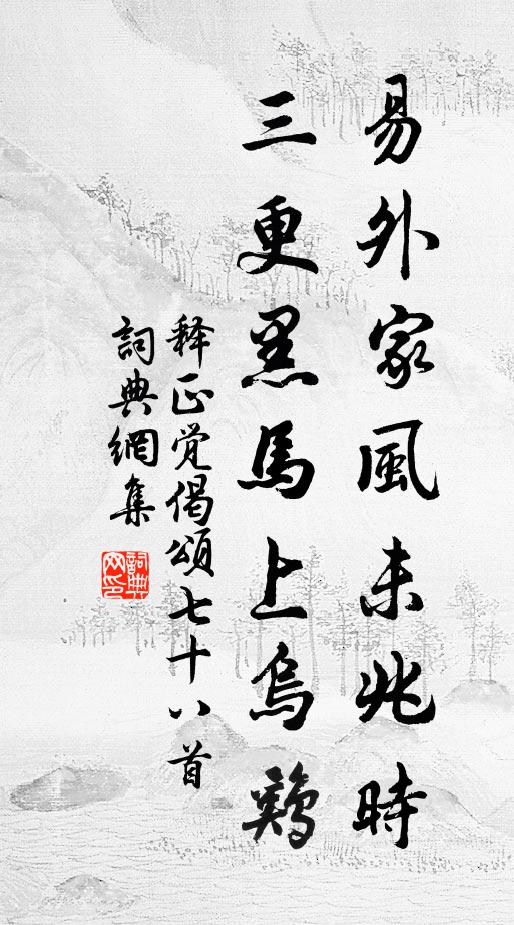 易外家風未兆時
三更黑馬上烏鷄
释正觉偈頌七十八首
詞典網集
詞典网印